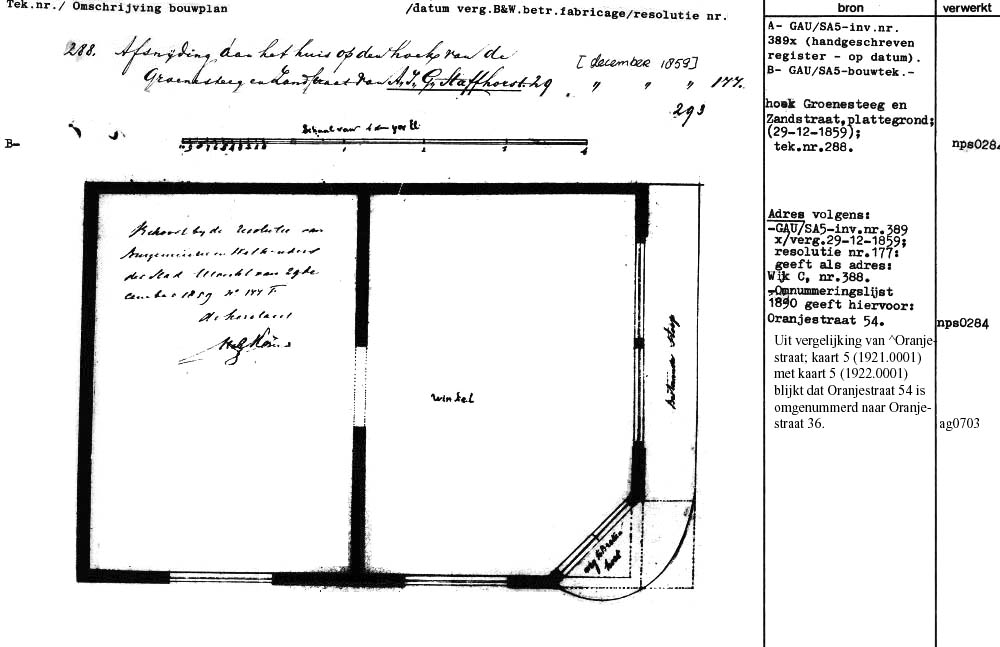 Tek.nr./ Omschrijving bouwplan /datum verg.B&W.betr.fabricage/resolutie nr.
288. Afsnijding aan het huis op den hoek van de [december 1859]
Groenesteeg en Zandstraat van A.J. G. Staffhorst. 29 " " " 177.
293
B-
Schaal van 1 à
Behoort bij de resolutie van
Burgemeester en Wethouders
der Stad Utrecht van 29 De
cember 1859 No 177 F.
de
winkel
bestaande stoep
bron
verwerkt
A- GAU/SA5-inv.nr.
389x (handgeschreven
register - op datum).
B- GAU/SA5-bouwtek.-
hoek Groenesteeg en
Zandstraat,plattegrond;
(29-12-1859);
tek.nr.288.
nps0284
Adres volgens:
-GAU/SA5-inv.nr.389
x/verg.29-12-1859;
resolutie nr.177:
geeft als adres:
Wijk C, nr.388.
-Omnummeringslijst
1890 geeft hiervoor:
Oranjestraat 54.
nps0284
Uit vergelijking van ^Oranje-
straat; kaart 5 (1921.0001)
met kaart 5 (1922.0001)
blijkt dat Oranjestraat 54 is
omgenummerd naar Oranje-
straat 36.
ag0703